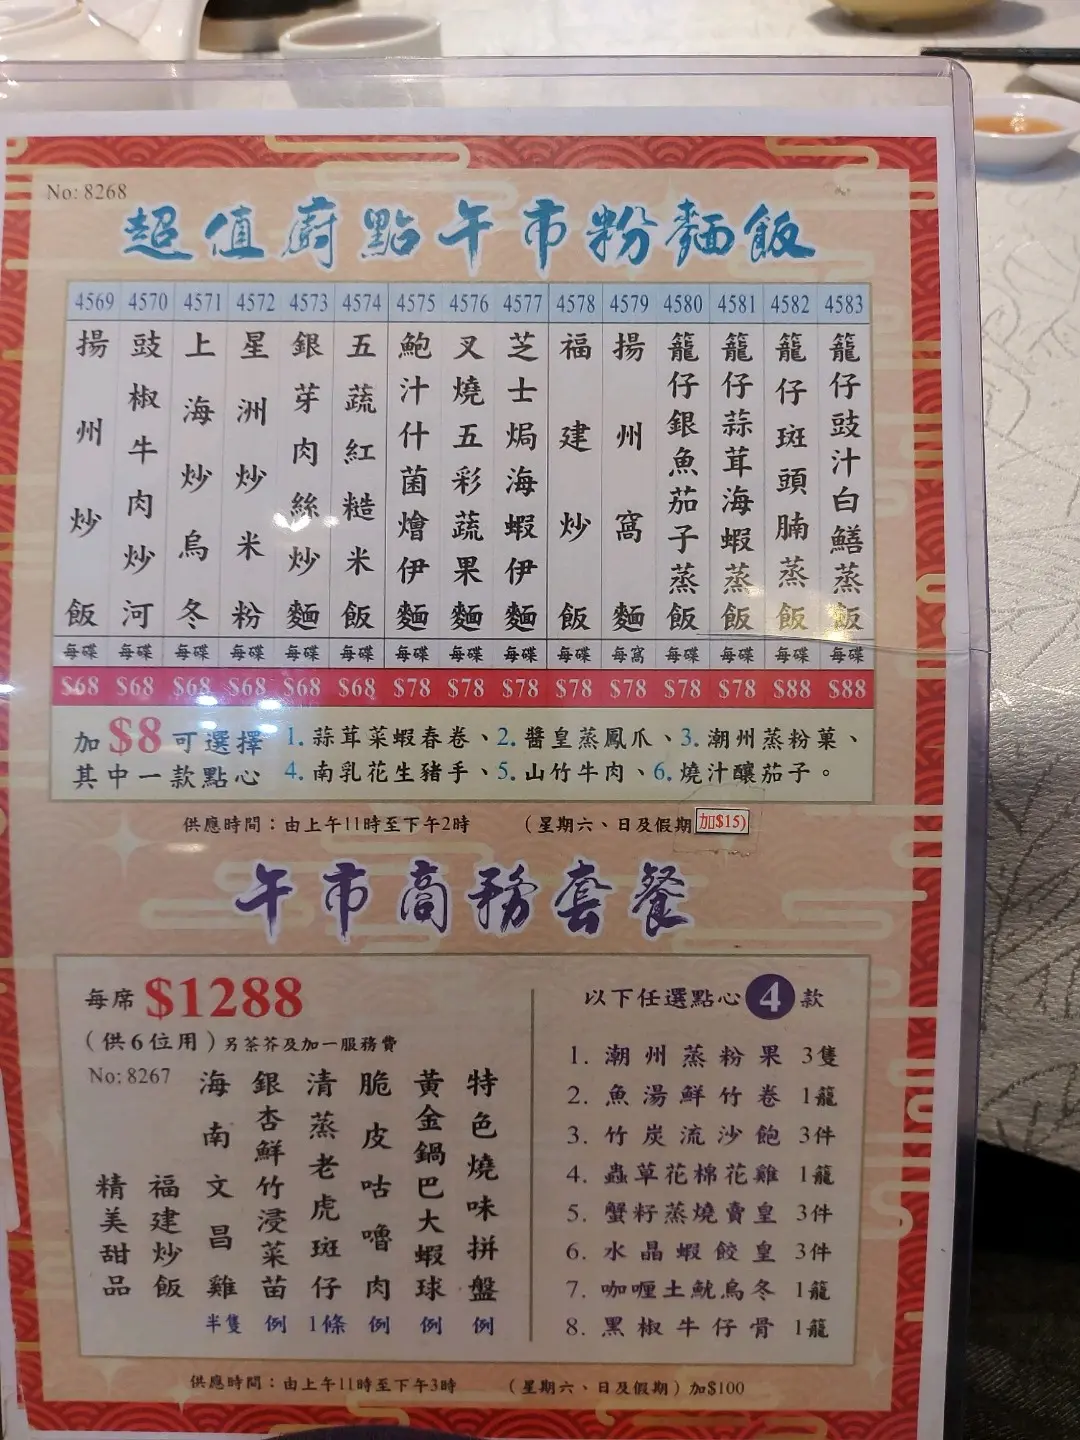 No: 8268
超值廚點午市粉麵飯
4569 4570 4571 4572 4573 4574 4575 4576 4577 4578 4579 4580 4581 4582 4583
揚州炒飯
豉椒牛肉炒河
上海炒烏冬
星洲炒米粉
銀芽肉絲炒麵
五蔬紅糙米飯
鮑汁什菌燴伊麵
叉燒五彩蔬果麵
芝士焗海蝦伊麵
福建炒飯
揚州窩麵
籠仔銀魚茄子蒸飯
籠仔蒜茸海蝦蒸飯
籠仔斑頭腩蒸飯
籠仔豉汁白鱔蒸飯
每碟 每碟 每碟 每碟 每碟 每碟 每碟 每碟 每碟 每碟 每窩 每碟 每碟 每碟 每碟
$68 $68 $68 $68 $68 $68 $78 $78 $78 $78 $78 $78 $78 $88 $88
加$8可選擇
其中一款點心
1. 蒜茸菜蝦春卷、2. 醬皇蒸鳳爪、3. 潮州蒸粉菓、
4. 南乳花生豬手、5. 山竹牛肉、6. 燒汁釀茄子。
供應時間：由上午11時至下午2時 （星期六、日及假期加$15)
午市商務套餐
每席 $1288
（供6位用）另茶芥及加一服務費
No: 8267
特色燒味拼盤 例
黃金鍋巴大蝦球 例
脆皮咕嚕肉 例
清蒸老虎斑仔 1條
銀杏鮮竹浸菜苗 例
海南文昌雞 半隻
福建炒飯
精美甜品
以下任選點心4款
1. 潮州蒸粉果 3隻
2. 魚湯鮮竹卷 1籠
3. 竹炭流沙飽 3件
4. 蟲草花棉花雞 1籠
5. 蟹籽蒸燒賣皇 3件
6. 水晶蝦餃皇 3件
7. 咖喱土魷烏冬 1籠
8. 黑椒牛仔骨 1籠
供應時間：由上午11時至下午3時 （星期六、日及假期）加$100